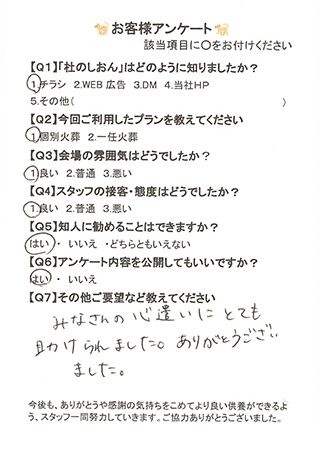 お客様アンケート
該当項目に〇をお付けください
【Q1】「杜のしおん」はどのように知りましたか？
1.チラシ 2.WEB 広告 3.DM 4.当社HP
5.その他( )
【Q2】今回ご利用したプランを教えてください
1.個別火葬 2.一任火葬
【Q3】会場の雰囲気はどうでしたか？
1.良い 2.普通 3.悪い
【Q4】スタッフの接客・態度はどうでしたか？
1.良い 2.普通 3.悪い
【Q5】知人に勧めることはできますか？
はい ・ いいえ ・どちらともいえない
【Q6】アンケート内容を公開してもいいですか？
はい ・ いいえ
【Q7】その他ご要望など教えてください
みなさんの心遣いにとても
助けられました。ありがとうござい
ました。
今後も、ありがとうや感謝の気持ちをこめてより良い供養ができるよ
う、スタッフ一同努力していきます。ご協力ありがとうございました。